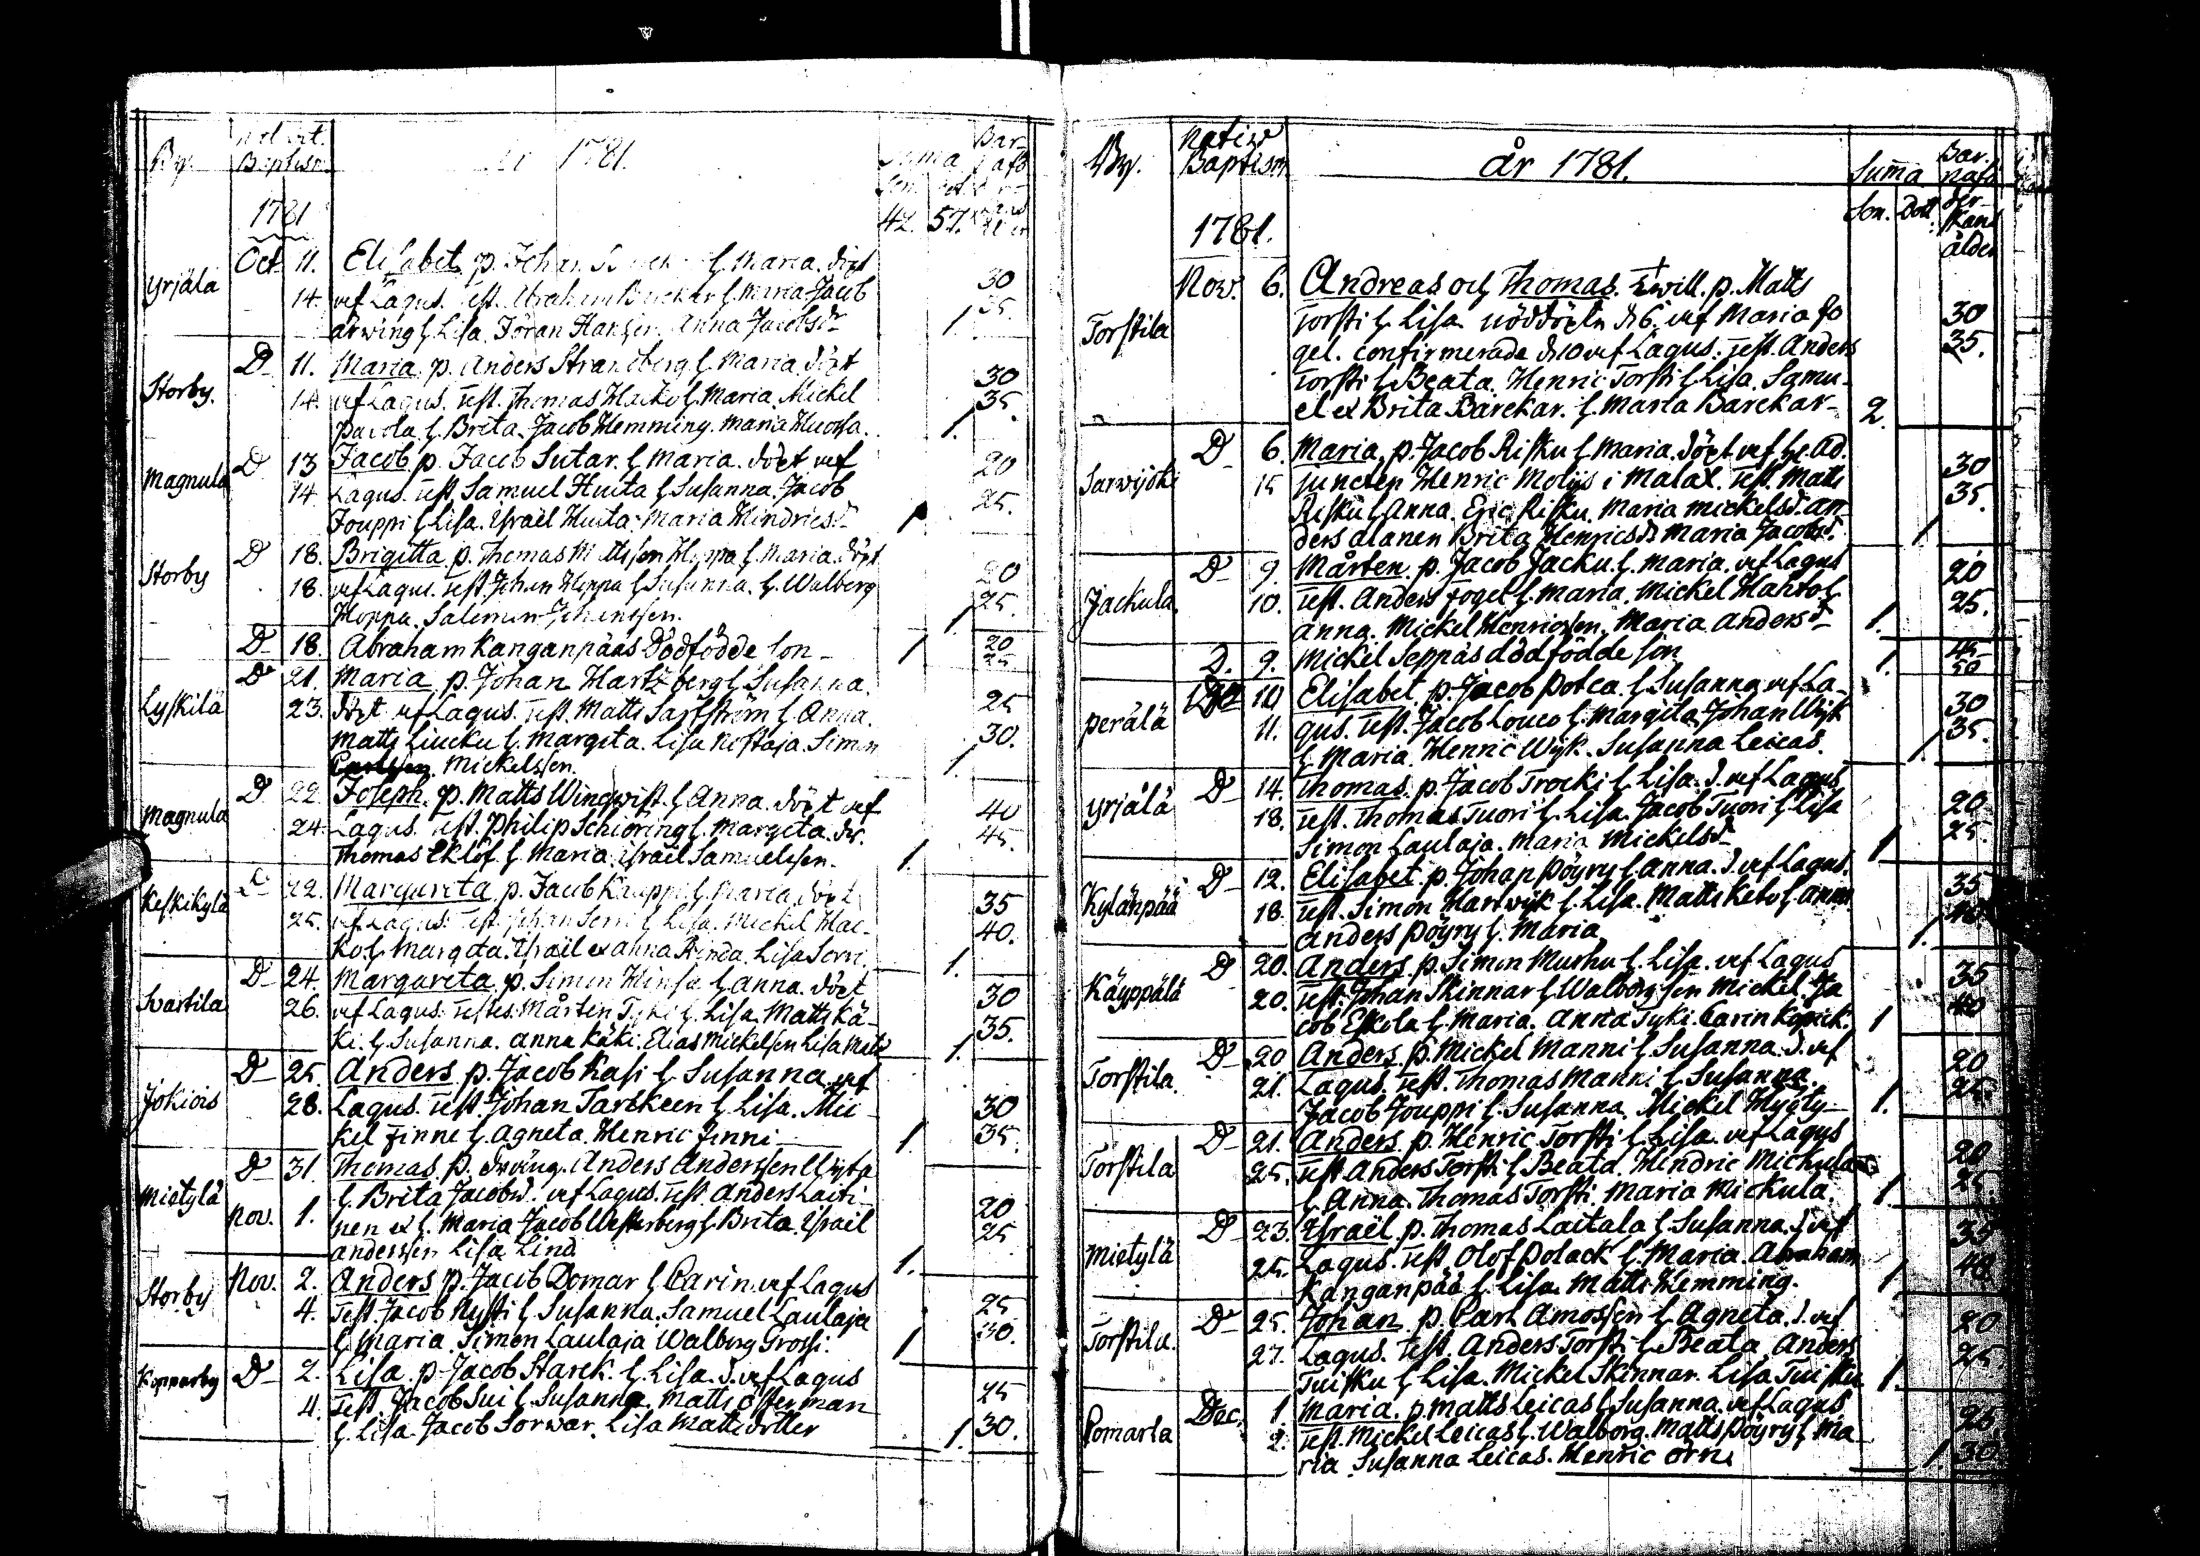 By.
Baptism
År 1781.
Summa
Bar-
42. 57.
1781
Yrjälä Oct. 11. Elisabet p. Johan h. Maria. döpt
14. utf Lagus. Test. Abraham h. Maria Jacob
h. Lisa. Jöran Hansen. Anna Jacobsdr 1. 30 35.
Storby. D- 11. Maria p. Anders Strandberg h. Maria döpt
14. utf Lagus. Test. Thomas h. Maria. Mickel
h. Brita. Jacob Hemming. Maria 1. 30 35.
Magnula D 13 Jacob p. Jacob Sutar. h. Maria. döpt utf
14 Lagus. Test. Samuel Huita h. Susanna. Jacob
Jouppi h. Lisa. Israel Huita. Maria Hindricsdr 1. 20 25.
Storby D 18. Brigitta p. Thomas Mattssen Hoppa h. Maria. döpt
18. utf Lagus. Test. Johan Hoppa h. Susanna. h. Walberg
Hoppa. Salomon 1 20 25.
D- 18. Abraham Kanganpääs Dödfödde son- 1 20 25
Lyskilä D 21. Maria p. Johan Hartzberg h. Susanna.
23. döpt utf Lagus. Test. Matts Sarfström h. Anna.
Matts Liucku h. Margeta. Lisa Nostaja. Simon
Mickelssen. 1 25 30.
Magnula D 22. Joseph. p. Matts Wingwist h. Anna. döpt utf
24. Lagus. Test. Philip Schioring h. Margeta. dr.
Thomas Eklöf h. Maria. Israel Samuelssen. 1. 40 45.
Keskikylä D 22. Margareta p. Jacob Knuppi h. Maria. döpt
25. utf Lagus. Test. Johan Serri h. Lisa. Mickel Hac-
ko h. Margeta. Israel ex Anna Lisa Serri. 1. 35 40.
Svartila D- 24. Margareta p. Simon Hinsa h. Anna. döpt
26. utf Lagus. Testes Mårten Tyki h. Lisa. Matts Kä-
ki. h. Susanna. Anna Käki. Elias Mickelssen Lisa 1. 30 35.
Jokiois D- 25. Anders p. Jacob Kasi h. Susanna utf
28. Lagus. Test. Johan Tarkkeen h. Lisa. Mic-
kel Finne h. Agneta. Henric Finni 1 30 35.
Mietylä D- 31. Thomas p. dräng. Anders Anderssen
Nov. 1. h. Brita Jacobsd. utf Lagus. Test. Anders Laiti-
nen ex h. Maria Jacob Westerberg h. Brita. Israel
Anderssen Lisa Lind 1. 20 25
Storby Nov. 2. Anders p. Jacob Domar h. Carin. utf Lagus
4. Test. Jacob Rysti h. Susanna. Samuel Laulaja
h. Maria. Simon Laulaja Walborg Grossi. 1 25 30.
Kopparby D- 2. Lisa p. Jacob Starck. h. Lisa. d. utf Lagus
4. Test. Jacob Sui h. Susanna. Matts Österman
h. Lisa. Jacob Sorwar. Lisa Mattsdotter 1. 25 30.
By. Nativ Baptism år 1781. Summa Bar-
Son. Dott.
ålder
1781.
Torstila Nov. 6. Andreas och Thomas. Twill. p. Matts
Torsti h. Lisa nöddöpte d. 6. utf Maria Fo
gel. confirmerade d. 10 utf Lagus. Test. Anders
Torsti h. Beata. Henric Torsti h. Lisa. Samu-
el ex Brita Barckar. h. Marta Barckar- 2. 30 35.
Sarwijoki D- 6. Maria p. Jacob Risku h. Maria. döpt utf Hr. Ad-
15 juncten Henric Molijs i Malax. Test. Matts
Risku h. Anna. Eric Risku. Maria Mickelsd. An-
ders Alanen Brita Henricsdr Maria Jacobsd. 1 30 35.
Jackula. D- 9. Mårten. p. Jacob Jacku. h. Maria. utf Lagus
10. Test. Anders Fogel h. Maria. Mickel Hahto h.
Anna. Mickel Henricssen. Maria Andersdr 1. 20 25.
D. 9. Mickel Seppäs dödfödde son 1. 45 50
Perälä 10 Elisabet p. Jacob Potca h. Susanna utf La-
11. gus. Test. Jacob Louco h. Margeta. Johan Wijk
h. Maria. Henric Wijk. Susanna Leicas. 1 30 35.
Yrjälä D- 14. Thomas. p. Jacob Trocki h. Lisa. d. utf Lagus
18. Test. Thomas Tuori h. Lisa. Jacob Tuori h. Lisa
Simon Laulaja. Maria Mickelsdr 1 20 25.
Kylänpää D- 12. Elisabet p. Johan Pöyry h. Anna. d. utf Lagus.
18. Test. Simon Hartwijk h. Lisa. Matts Keto h. Anna
Anders Pöyry h. Maria 1. 35 40.
Käyppälä D 20. Anders. p. Simon Murhu h. Lisa. utf Lagus
20. Test. Johan Skinnar h. Walborg Sen Mickel. Ja
cob Eskola h. Maria. Anna Tyki. Carin 1 35 40
Torstila. D- 20 Anders. p. Mickel Manni h. Susanna. d. utf
21. Lagus. Test. Thomas Manni h. Susanna.
Jacob Jouppi h. Susanna. Mickel 1. 20 25.
Torstila D- 21. Anders. p. Henric Torsti h. Lisa. utf Lagus
25. Test Anders Torsti h. Beata. Hindric Mickula
h. Anna. Thomas Torsti. Maria Mickula. 1. 20 25.
Mietylä D- 23. Israël p. Thomas Laitala h. Susanna. d. utf
25. Lagus. Test. Olof Polack h. Maria. Abraham
Kanganpää h. Lisa. Matts Hemming. 1 35 40.
Torstila. D- 25. Johan. p. Carl Amossen h. Agneta. d. utf
27. Lagus. Test. Anders Torsti h. Beata. Anders
Tuisku h. Lisa. Mickel Skinnar. Lisa Tuisku 1. 20 25
Pomarla Dec. 1. Maria. p. Matts Leicas h. Susanna. utf Lagus
2. Test. Mickel Leicas h. Walborg. Matts Pöyry h. Ma-
ria Susanna Leicas. Henric Orn 1. 25 30